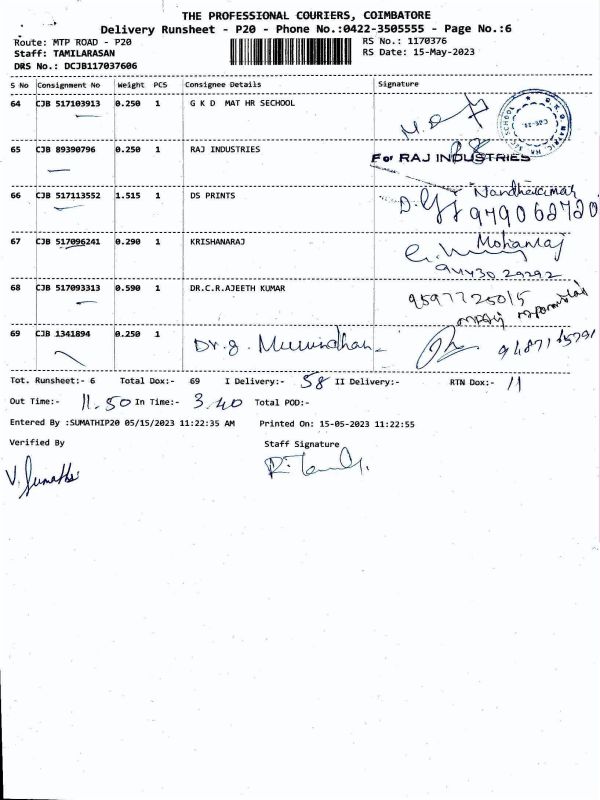 THE PROFESSIONAL COURIERS, COIMBATORE
Delivery Runsheet - P20 - Phone No.:0422-3505555 - Page No.:6
Route: MTP ROAD - P20
RS No.: 1170376
Staff: TAMILARASAN
RS Date: 15-May-2023
DRS No.: DCJB117037606
S No Consignment No Weight PCS Consignee Details Signature
64 CJB 517103913 0.250 1 G K D MAT HR SECHOOL
65 CJB 89390796 0.250 1 RAJ INDUSTRIES
For RAJ INDUSTRIES
66 CJB 517113552 1.515 1 DS PRINTS
Nandhakumar
67 CJB 517096241 0.290 1 KRISHANARAJ
Mohanraj
94430 29292
68 CJB 517093313 0.590 1 DR.C.R.AJEETH KUMAR
9597725015
69 CJB 1341894 0.250 1
Tot. Runsheet:- 6 Total Dox:- 69 I Delivery:- 58 II Delivery:- RTN Dox:- 11
Out Time:- 11.50 In Time:- 3.40 Total POD:-
Entered By :SUMATHIP20 05/15/2023 11:22:35 AM Printed On: 15-05-2023 11:22:55
Verified By Staff Signature
V. Sumathi